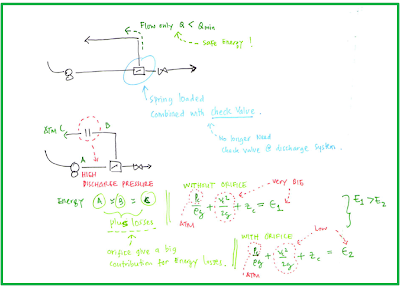 Flow only Q < Qmin
Safe Energy !
Spring loaded
Combined with Check Valve.
No longer need
Check valve @ discharge system.
Atm C
B
A
HIGH
DISCHARGE PRESSURE
Energy A = B = C
plus losses
orifice give a big
contribution for Energy losses.
WITHOUT ORIFICE
very BIG
Pc/ρg + Vc²/2g + Zc = E1
ATM
E1 > E2
WITH ORIFICE
Low
Pc/ρg + Vc²/2g + Zc = E2
ATM